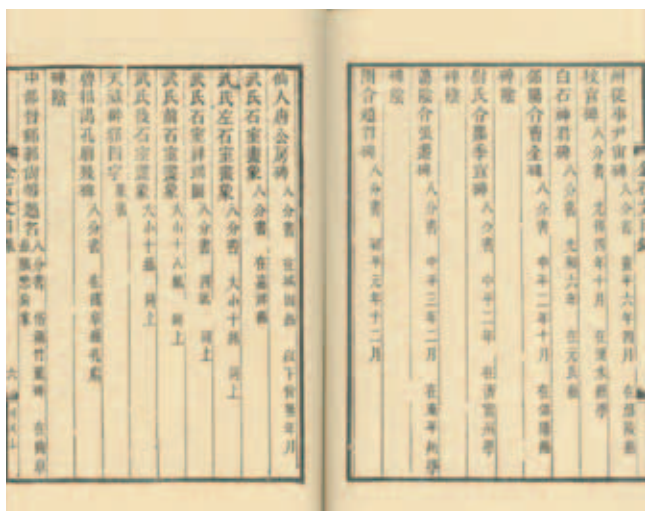 州從事尹宙碑 八分書 熹平六年四月 在鄢陵縣
校官碑 八分書 光和四年十月 在溧水縣學
白石神君碑 八分書 光和六年 在元氏縣
郃陽令曹全碑 八分書 中平二年十月 在郃陽縣
碑陰
尉氏令鄭季宣碑 八分書 中平二年 在濟寧州學
碑陰
蕩陰令張遷碑 八分書 中平三年二月 在東平州學
碑陰
圉令趙君碑 八分書 初平元年十二月
仙人唐公房碑 八分書 在城固縣 以下俱無年月
武氏石室畫象 八分書 在嘉祥縣
武氏左石室畫象 八分書 大小十紙 同上
武氏石室祥瑞圖 八分書 同上
武氏前石室畫象 大小十八紙 同上
武氏後石室畫象 大小十紙 同上
天祿辟邪四字 篆書
碑陰
金石文目錄
六